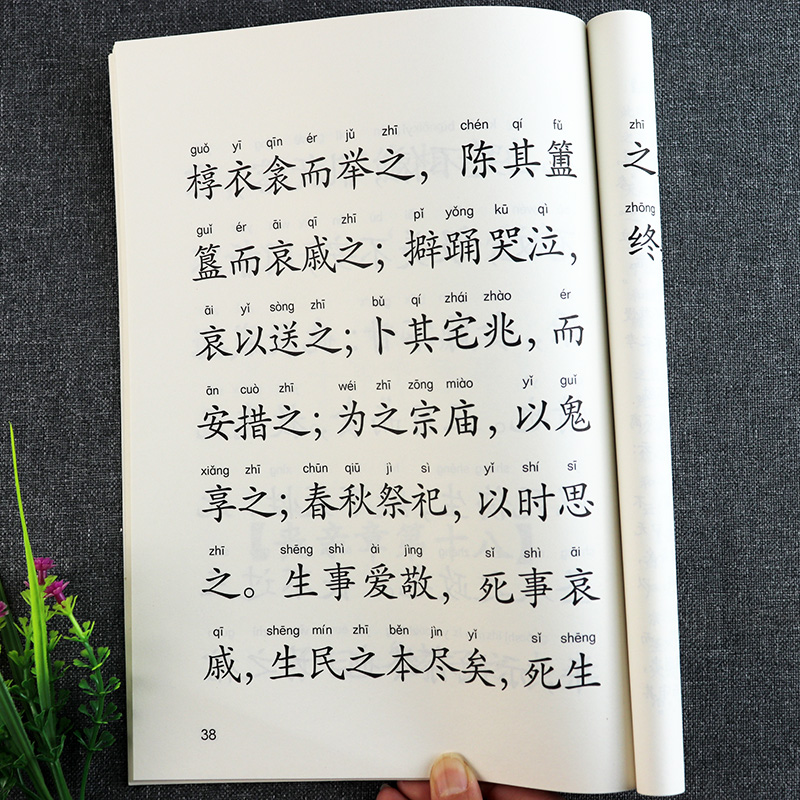 guǒ yī qīn ér jǔ zhī chén qí fǔ
椁衣衾而举之，陈其簠
guǐ ér āi qī zhī pǐ yǒng kū qì
簋而哀戚之；擗踊哭泣，
āi yǐ sòng zhī bǔ qí zhái zhào ér
哀以送之；卜其宅兆，而
ān cuò zhī wéi zhī zōng miào yǐ guǐ
安措之；为之宗庙，以鬼
xiǎng zhī chūn qiū jì sì yǐ shí sī
享之；春秋祭祀，以时思
zhī shēng shì ài jìng sǐ shì āi
之。生事爱敬，死事哀
qī shēng mín zhī běn jìn yǐ sǐ shēng
戚，生民之本尽矣，死生
38
zhī
之
zhōng
终